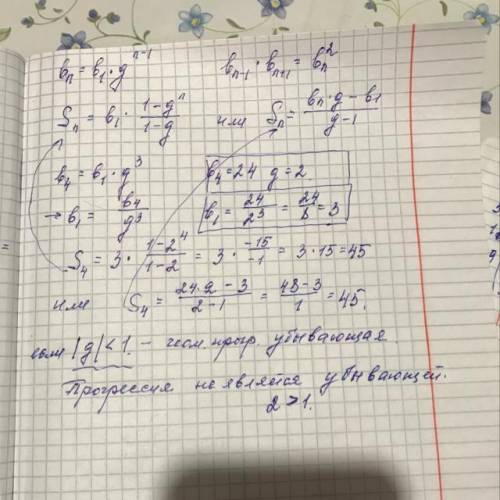 bₙ = b₁ · g^(n-1)    bₙ₋₁ · bₙ₊₁ = bₙ²
Sₙ = b₁ · (1-gⁿ)/(1-g)    или    Sₙ = (bₙ · g - b₁)/(g-1)
b₄ = b₁ · g³    b₄ = 24 g = 2
→ b₁ = b₄/g³    b₁ = 24/2³ = 24/8 = 3
S₄ = 3 · (1-2⁴)/(1-2) = 3 · (-15)/(-1) = 3 · 15 = 45
или    S₄ = (24·2 - 3)/(2-1) = (48-3)/1 = 45.
если |g| < 1. – геом. прогр. убывающая
Прогрессия не является убывающей.
2 > 1.